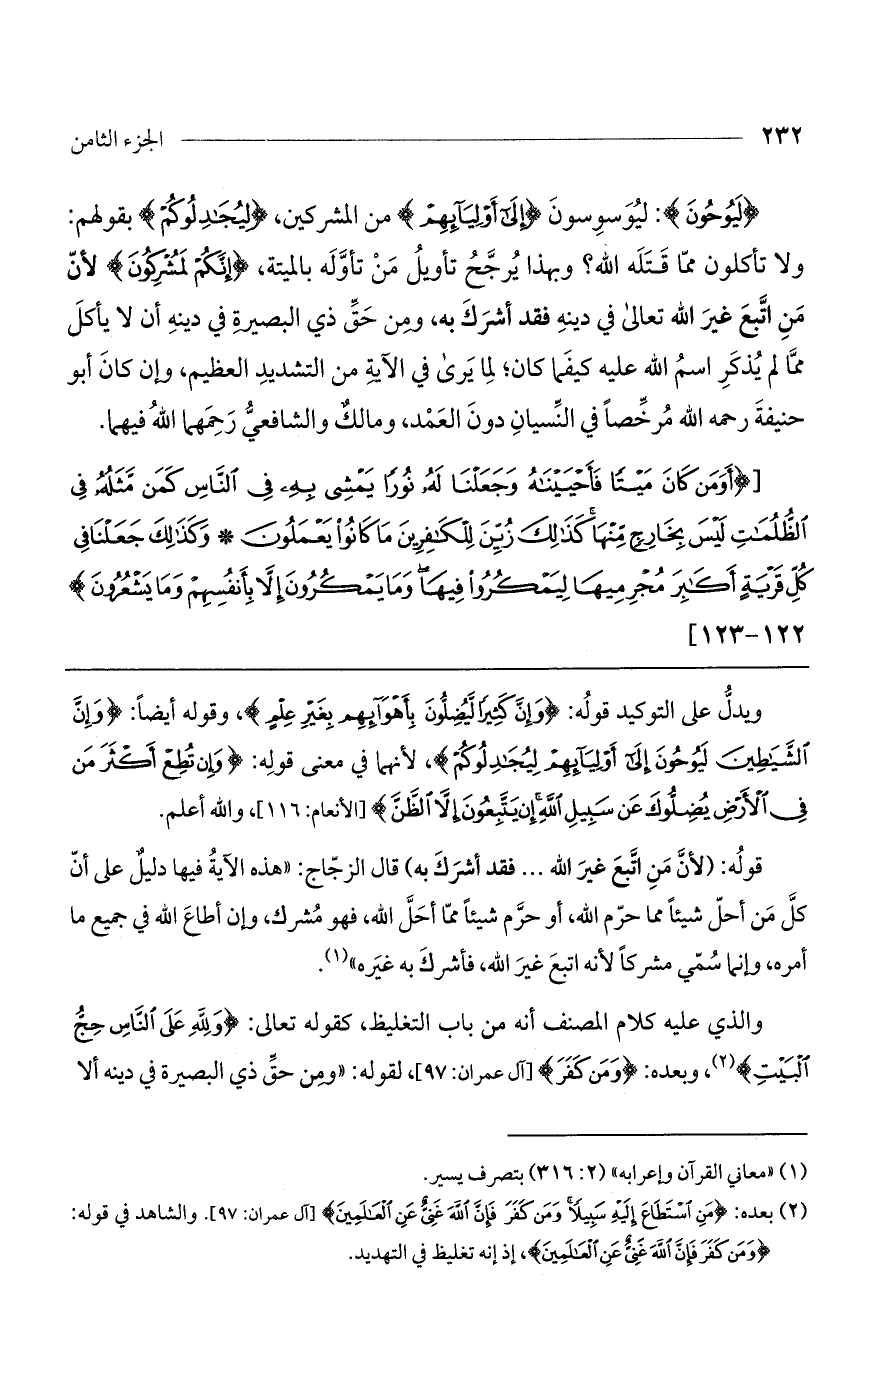 ٢٣٢ الجزء الثامن
﴿لَيُوحُونَ﴾: ليُوَسوِسونَ ﴿إِلَىٰٓ أَوْلِيَآئِهِمْ﴾ من المشركين، ﴿لِيُجَٰدِلُوكُمْ﴾ بقولهم:
ولا تأكلون ممّا قَتَلَه الله؟ وبهذا يُرجَّحُ تأويلُ مَنْ تأوَّلَه بالميتة، ﴿إِنَّكُمْ لَمُشْرِكُونَ﴾ لأنّ
مَنِ اتَّبعَ غيرَ الله تعالىٰ في دينهِ فقد أشرَكَ به، ومِن حَقِّ ذي البصيرةِ في دينهِ أن لا يأكلَ
ممَّا لم يُذكَرِ اسمُ الله عليه كيفَما كان؛ لِما يَرىٰ في الآيةِ من التشديدِ العظيم، وإن كانَ أبو
حنيفةَ رحمه الله مُرخِّصاً في النِّسيانِ دونَ العَمْد، ومالكٌ والشافعيُّ رَحِمَهما اللهُ فيهما.
[﴿أَوَمَن كَانَ مَيْتًا فَأَحْيَيْنَٰهُ وَجَعَلْنَا لَهُۥ نُورًا يَمْشِى بِهِۦ فِى ٱلنَّاسِ كَمَن مَّثَلُهُۥ فِى
ٱلظُّلُمَٰتِ لَيْسَ بِخَارِجٍ مِّنْهَا ۚ كَذَٰلِكَ زُيِّنَ لِلْكَٰفِرِينَ مَا كَانُوا۟ يَعْمَلُونَ * وَكَذَٰلِكَ جَعَلْنَا فِى
كُلِّ قَرْيَةٍ أَكَٰبِرَ مُجْرِمِيهَا لِيَمْكُرُوا۟ فِيهَا ۖ وَمَا يَمْكُرُونَ إِلَّا بِأَنفُسِهِمْ وَمَا يَشْعُرُونَ﴾
١٢٢-١٢٣]
ويدلُّ على التوكيد قولُه: ﴿وَإِنَّ كَثِيرًا لَّيُضِلُّونَ بِأَهْوَآئِهِم بِغَيْرِ عِلْمٍ﴾، وقوله أيضاً: ﴿وَإِنَّ
ٱلشَّيَٰطِينَ لَيُوحُونَ إِلَىٰٓ أَوْلِيَآئِهِمْ لِيُجَٰدِلُوكُمْ﴾، لأنهما في معنى قولِه: ﴿وَإِن تُطِعْ أَكْثَرَ مَن
فِى ٱلْأَرْضِ يُضِلُّوكَ عَن سَبِيلِ ٱللَّهِ ۚ إِن يَتَّبِعُونَ إِلَّا ٱلظَّنَّ﴾ [الأنعام: ١١٦]، والله أعلم.
قولُه: (لأنَّ مَنِ اتَّبعَ غيرَ الله ... فقد أشرَكَ به) قال الزجّاج: «هذه الآيةُ فيها دليلٌ على أنّ
كلَّ مَن أحلّ شيئاً مما حرّم الله، أو حرَّم شيئاً ممّا أحَلَّ الله، فهو مُشرك، وإن أطاعَ الله في جميع ما
أمره، وإنما سُمّي مشركاً لأنه اتبعَ غيرَ الله، فأشركَ به غيَره»(١).
والذي عليه كلام المصنف أنه من باب التغليظ، كقوله تعالى: ﴿وَلِلَّهِ عَلَى ٱلنَّاسِ حِجُّ
ٱلْبَيْتِ﴾(٢)، وبعده: ﴿وَمَن كَفَرَ﴾ [آل عمران: ٩٧]، لقوله: «ومِن حقِّ ذي البصيرة في دينه ألا
(١) «معاني القرآن وإعرابه» (٢: ٣١٦) بتصرف يسير.
(٢) بعده: ﴿مَنِ ٱسْتَطَاعَ إِلَيْهِ سَبِيلًا ۚ وَمَن كَفَرَ فَإِنَّ ٱللَّهَ غَنِىٌّ عَنِ ٱلْعَٰلَمِينَ﴾ [آل عمران: ٩٧]. والشاهد في قوله:
﴿وَمَن كَفَرَ فَإِنَّ ٱللَّهَ غَنِىٌّ عَنِ ٱلْعَٰلَمِينَ﴾، إذ إنه تغليظ في التهديد.